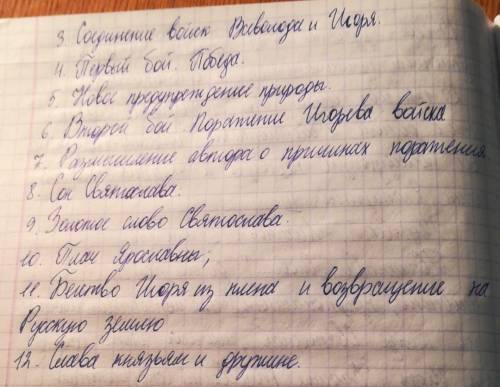 3. Соединение войск Всеволода и Игоря.
4. Первый бой. Победа.
5. Новое предупреждение природы.
6. Второй бой. Поражение Игорева войска
7. Размышление автора о причинах поражения
8. Сон Святослава.
9. Золотое слово Святослава.
10. Плач Ярославны,
11. Бегство Игоря из плена и возвращение на
Русскую землю
12. Слава князьям и дружине.